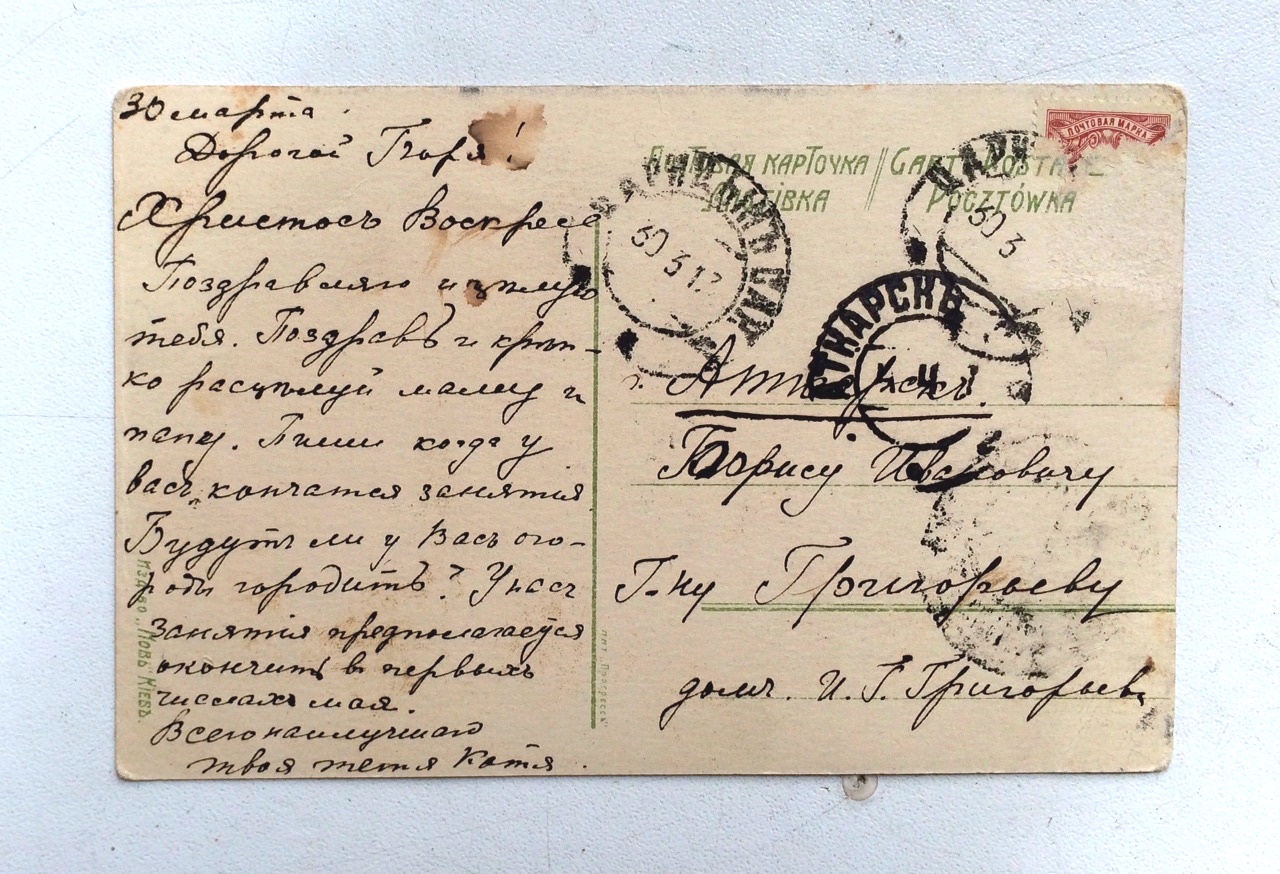 30 марта
Дорогой Боря!
Христосъ Воскресе
Поздравляю и цѣлую
тебя. Поздравь и крѣп-
ко расцѣлуй маму и
папу. Пиши когда у
васъ кончатся занятія
Будутъ ли у Васъ ого-
роды городить? У насъ
занятія предполагается
окончить въ первыхъ
числахъ мая.
Всего наилучшаго
твоя тетя Катя.
ИЗД-ВО „НОВЬ" КІЕВЪ.
ПОЧТОВАЯ МАРКА
ПОЧТОВАЯ КАРТОЧКА CARTE POSTALE
ЛИСТІВКА POCZTÓWKA
ЦАРИЦЫНЪ ЦАР
30 3 17
ЦАРИ
30 3
АТКАРСКЪ
г. Аткарскъ.
Борису Ивановичу
Г-ну Григорьеву
домъ. И. Г. Григорьева